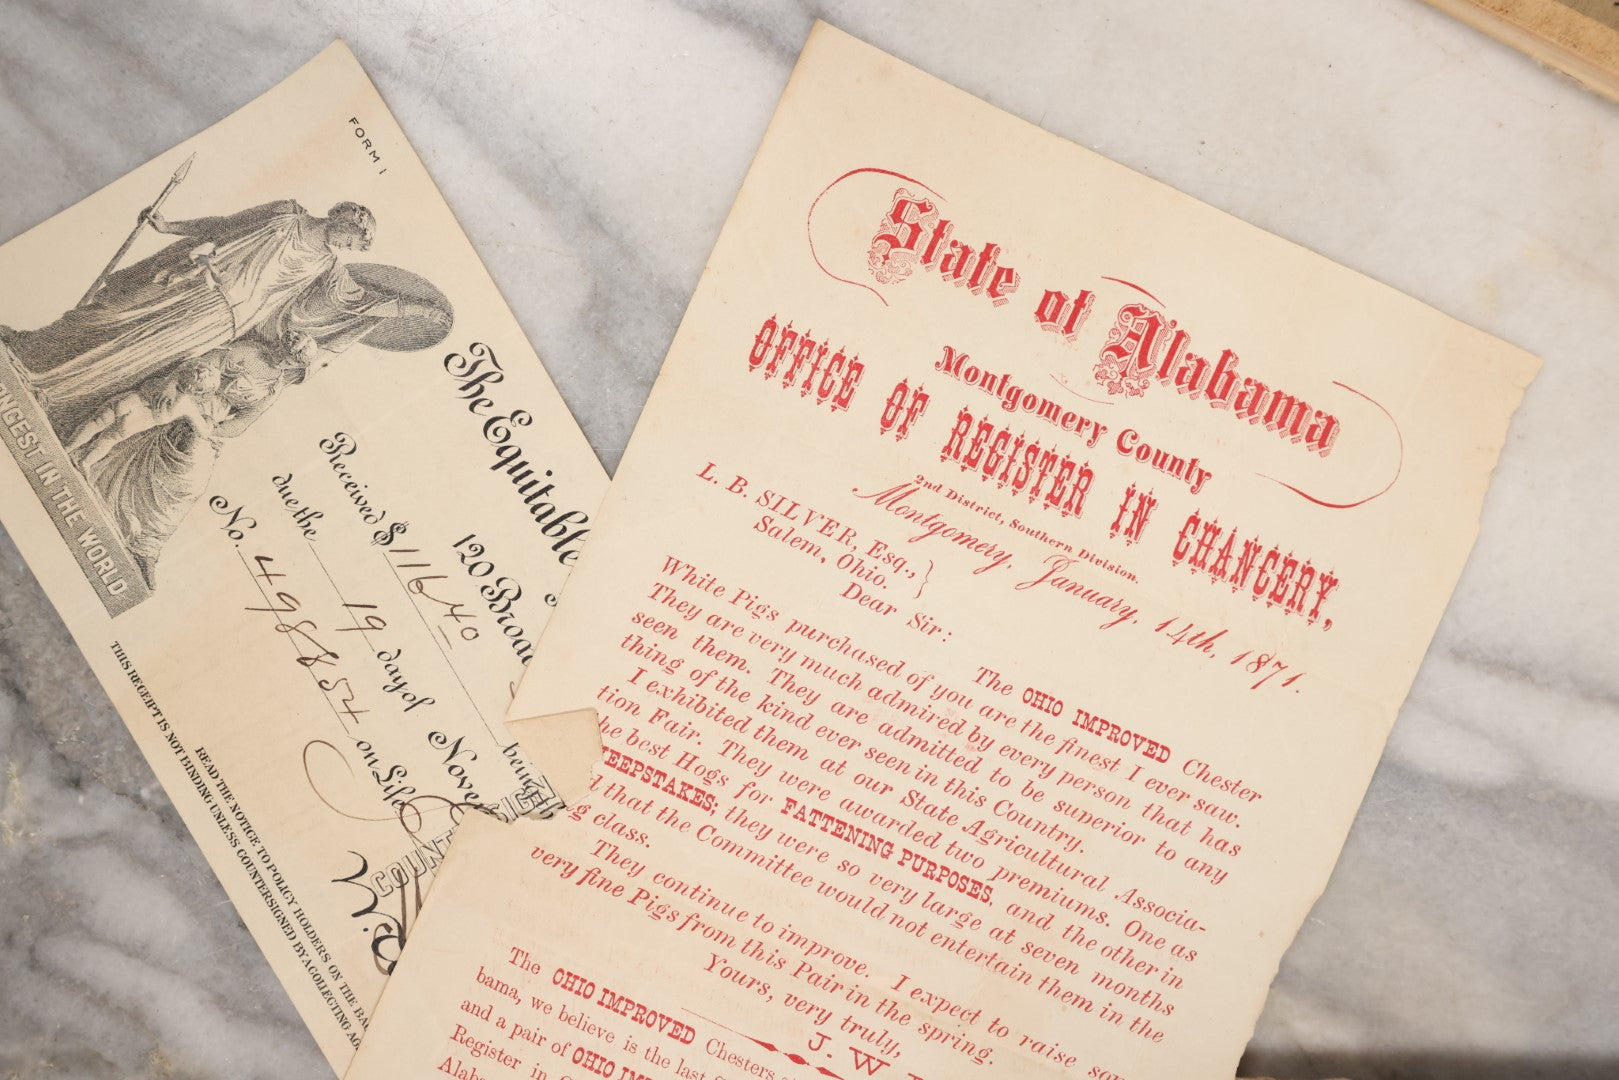 FORM 1
NGEST IN THE WORLD
The Equitable
120 Broa
Received $ 116 40
due the 19 day of Nove
being th
No. 498852 on Life
COUNT SIG
THIS RECEIPT IS NOT BINDING UNLESS COUNTERSIGNED BY A COLLECTING AG
READ THE NOTICE TO POLICY HOLDERS ON THE BA
State of Alabama
Montgomery County
OFFICE OF REGISTER IN CHANCERY,
2nd District, Southern Division.
Montgomery, January, 14th, 1871.
L. B. SILVER, Esq.,
Salem, Ohio.
Dear Sir:
The OHIO IMPROVED Chester
White Pigs purchased of you are the finest I ever saw.
They are very much admired by every person that has
seen them. They are admitted to be superior to any
thing of the kind ever seen in this Country.
I exhibited them at our State Agricultural Associa-
tion Fair. They were awarded two premiums. One as
he best Hogs for FATTENING PURPOSES, and the other in
EEPSTAKES; they were so very large at seven months
d that the Committee would not entertain them in the
g class.
They continue to improve. I expect to raise so
very fine Pigs from this Pair in the spring.
Yours, very truly,
J. W.
The OHIO IMPROVED Chesters
bama, we believe is the last
and a pair of OHIO IM
Register in
Alab